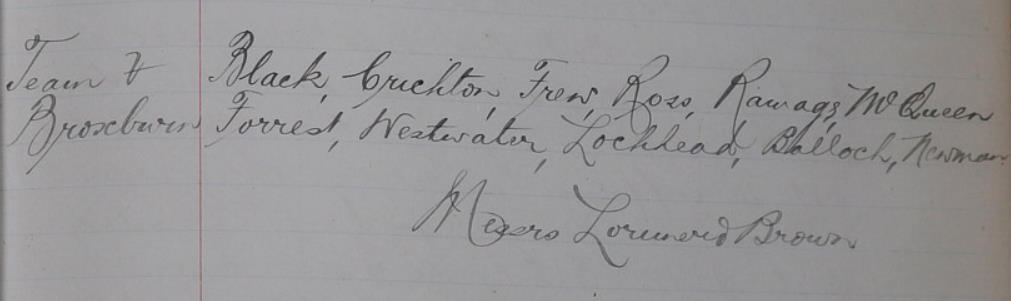 Team v Black, Crichton, Frew, Ross, Ramage, McQueen
Broxburn Forrest, Westwater, Lochhead, Balloch, Newman
Brown